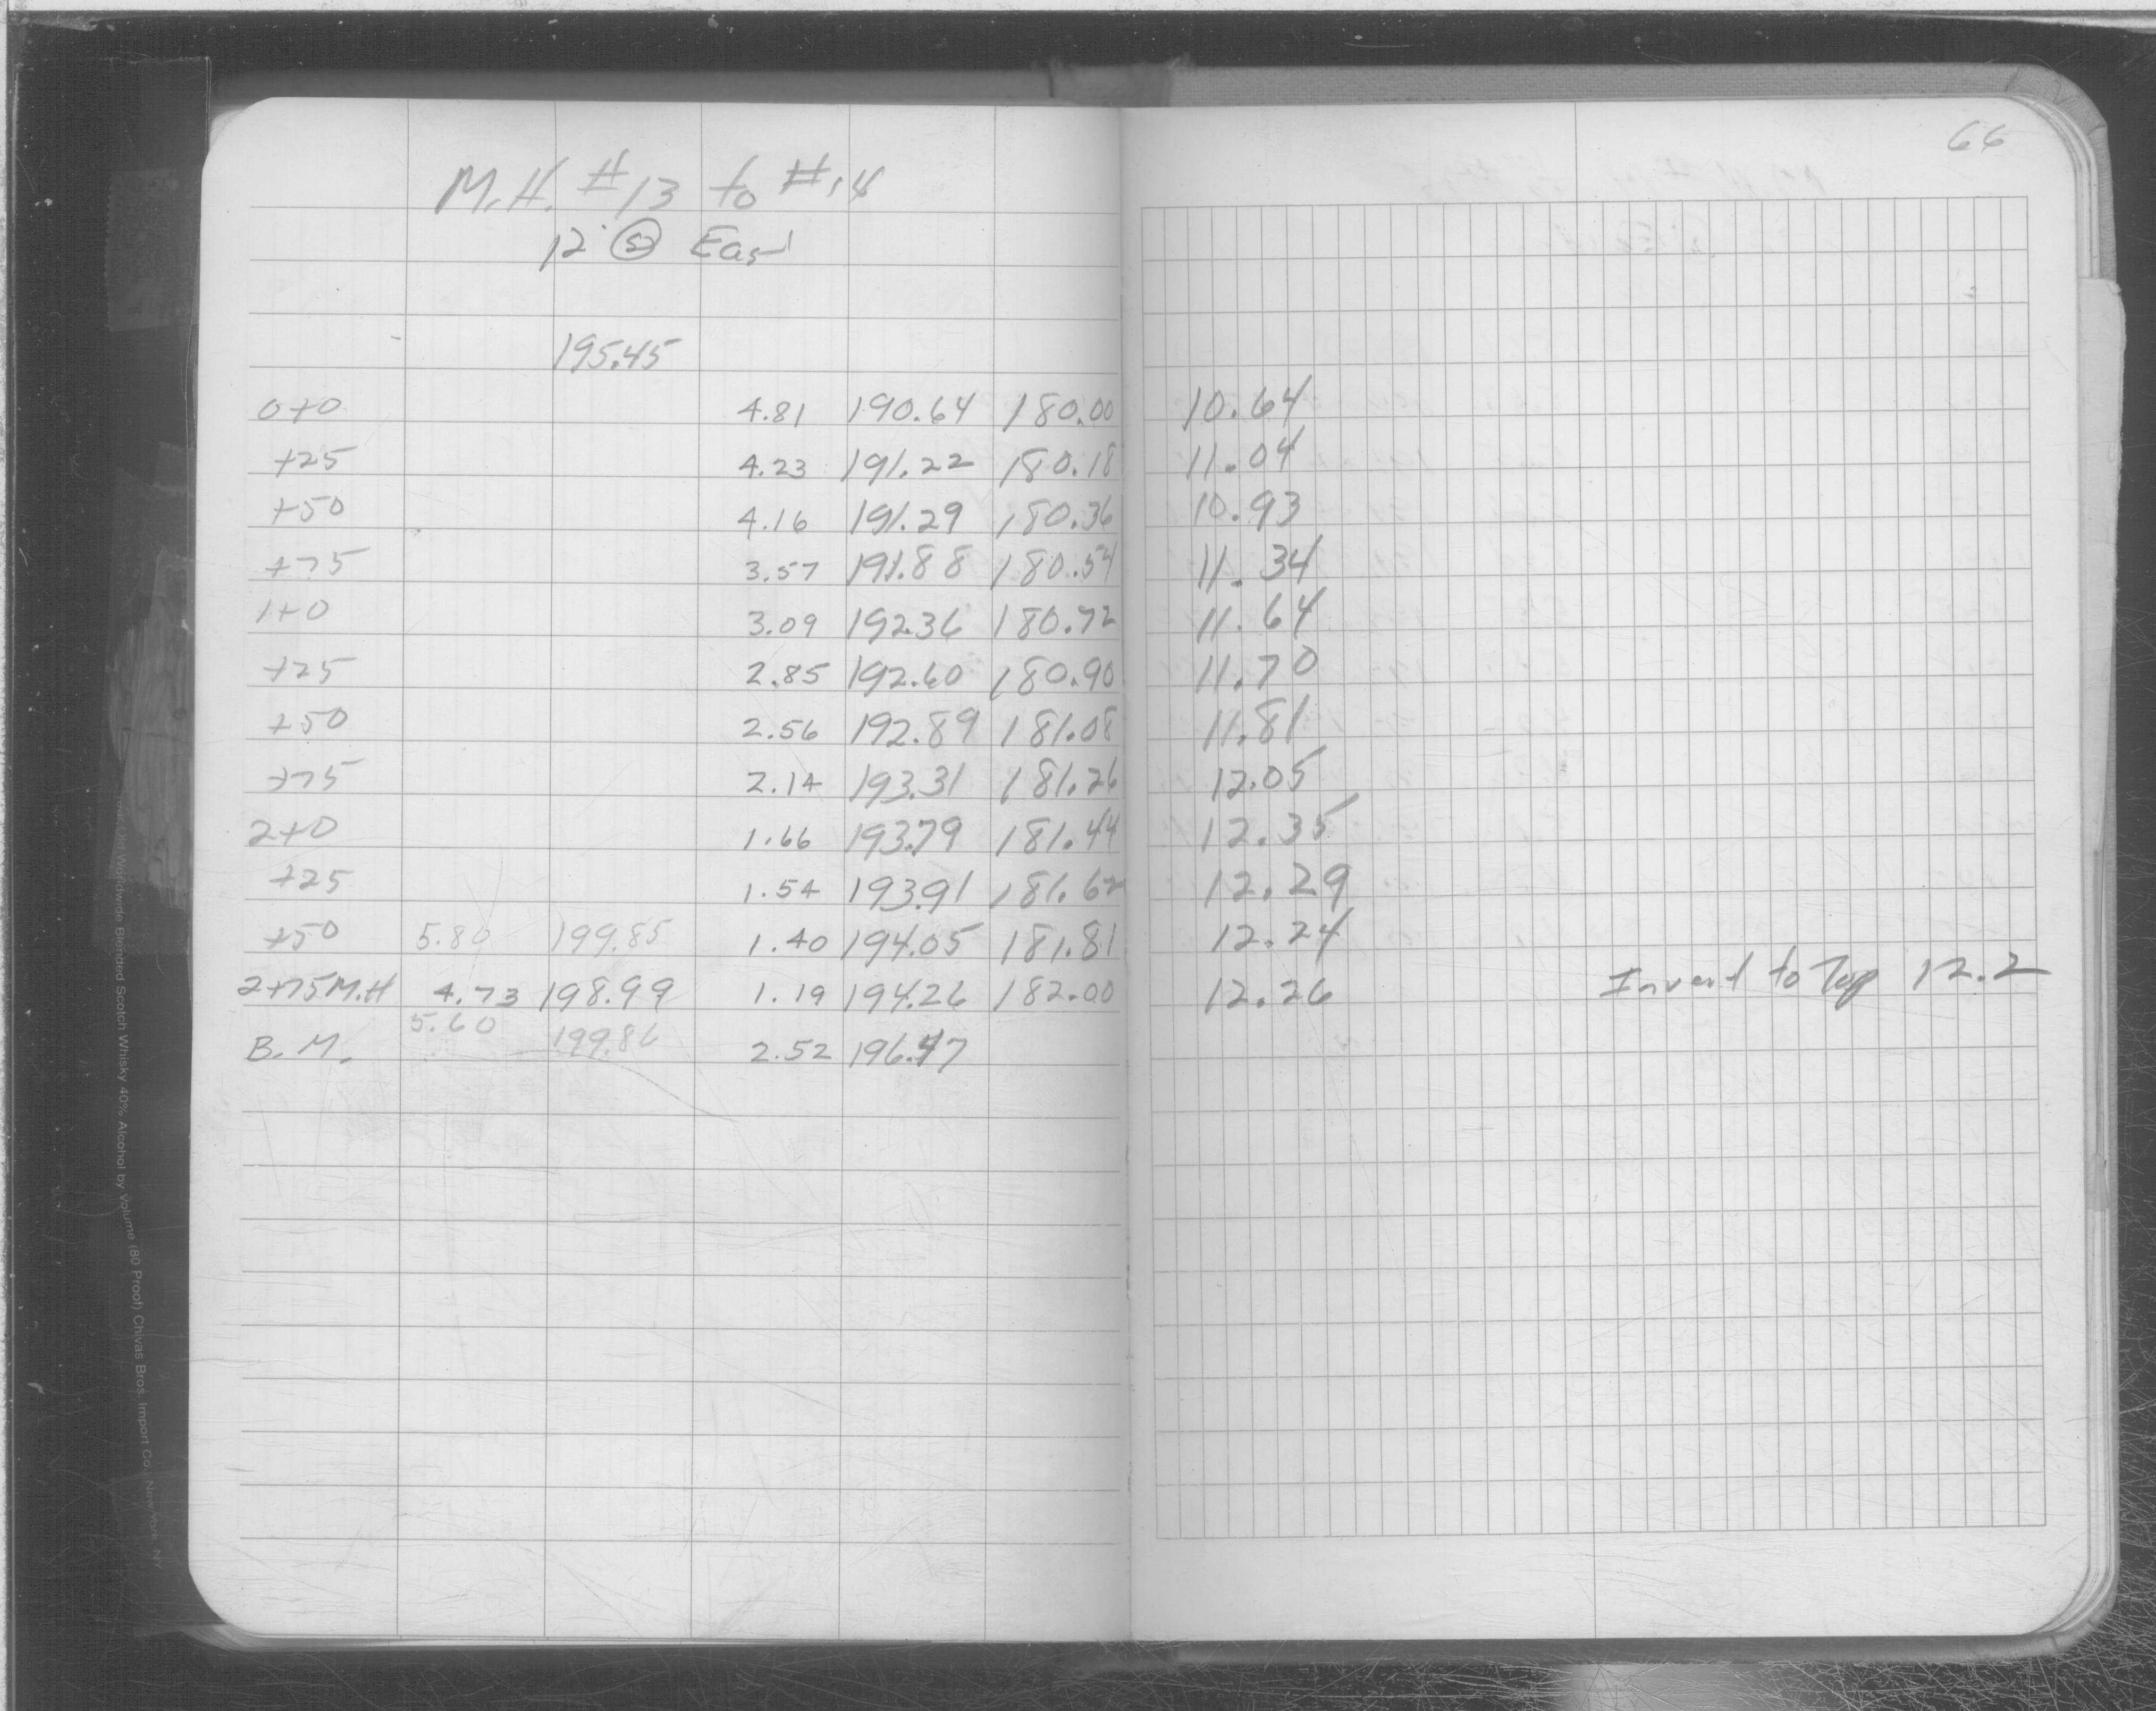 66
M.H. #13 to #14
12" Ⓢ East
195.45
0+0 4.81 190.64 180.00 10.64
+25 4.23 191.22 180.18 11.04
+50 4.16 191.29 180.36 10.93
+75 3.57 191.88 180.54 11.34
1+0 3.09 192.36 180.72 11.64
+25 2.85 192.60 180.90 11.70
+50 2.56 192.89 181.08 11.81
+75 2.14 193.31 181.26 12.05
2+0 1.66 193.79 181.44 12.35
+25 1.54 193.91 181.62 12.29
+50 5.80 199.85 1.40 194.05 181.81 12.24
2+75 M.H 4.73 198.99 1.19 194.26 182.00 12.26 Invert to Top 12.2
5.60 199.86
B.M. 2.52 196.47
Worldwide Blended Scotch Whisky 40% Alcohol by Volume (80 Proof) Chivas Bros. Import Co., New York, NY